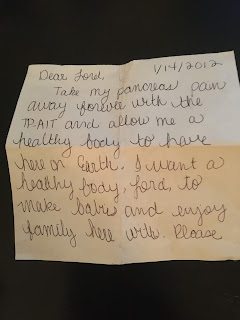 Dear Lord, 1/14/2012
Take my pancreas pain
away forever with the
TP-AIT and allow me a
healthy body to have
here on Earth. I want a
healthy body, Lord, to
make babies and enjoy
family here with. Please